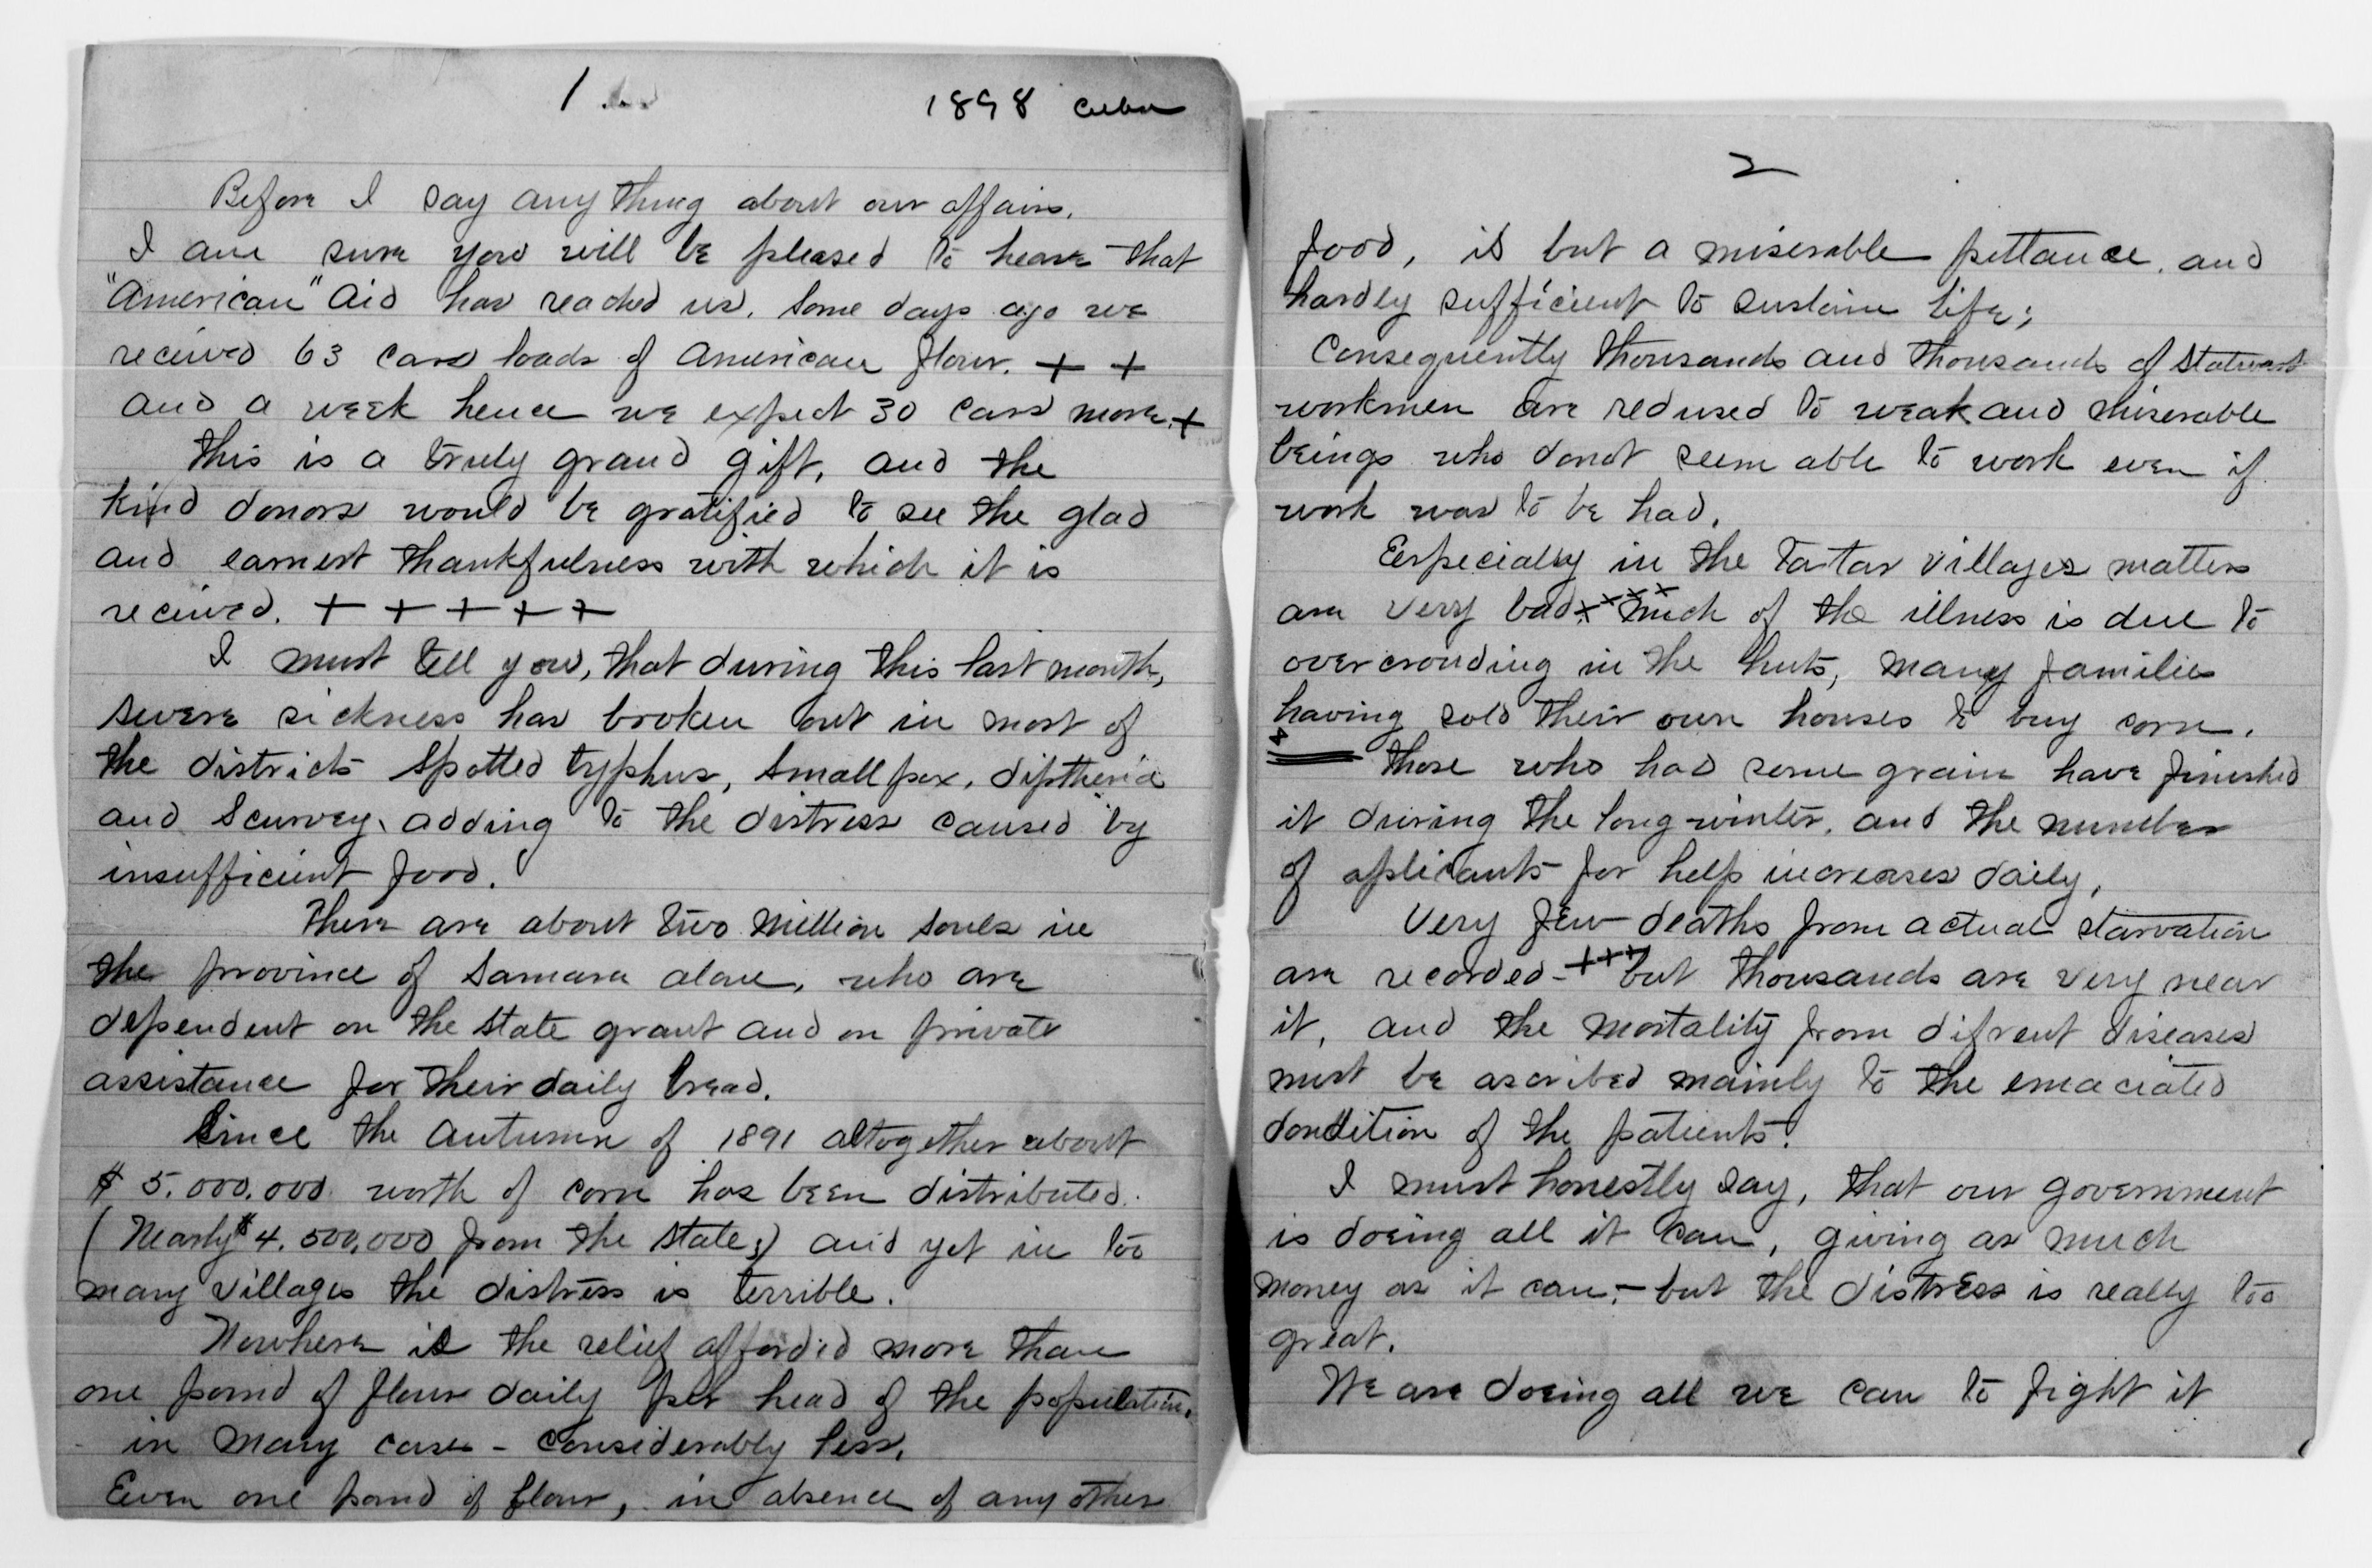 1
1898 Cuba
Before I say any thing about our affairs.
I am sure you will be pleased to hear that
"American" Aid has reached us. Some days ago we
received 63 cars loads of American flour. + +
and a week hence we expect 30 cars more. +
This is a truly grand gift, and the
kind donors would be gratified to see the glad
and earnest thankfulness with which it is
received. + + + + +
I must tell you, that during this last month,
severe sickness has broken out in most of
the districts Spotted typhus, Small pox, diptheria
and Scurvey, adding to the distress caused by
insufficient food.
There are about two Million souls in
the province of Samara alone, who are
dependent on the state grant and on private
assistance for their daily bread.
Since the Autumn of 1891 altogether about
$ 5.000.000 worth of corn has been distributed.
(Nearly $4.500,000 from the state;) and yet in too
many villages the distress is terrible.
Nowhere is the relief afforded more than
one pound of flour daily per head of the population.
in many cases - considerably less.
Even one pound of flour, in absence of any other
2
food, is but a miserable pittance, and
hardly sufficient to sustain life;
Consequently thousands and thousands of stalwart
workmen are redused to weak and miserable
beings who donot seem able to work even if
work was to be had.
Eespecially in the Tartar villages matters
are very bad. x x x x Much of the illness is due to
overcrouding in the huts, many families
having sold their own houses to buy corn.
Those who had some grain have finished
it during the long winter, and the number
of aplicants for help increases daily.
Very few deaths from actual starvation
are recorded - + + + but thousands are very near
it, and the mortality from difrent diseases
must be ascribed mainly to the emaciated
condition of the patients!
I must honestly say, that our government
is doeing all it can, giving as much
money as it can; - but the distress is really too
great.
We are doeing all we can to fight it